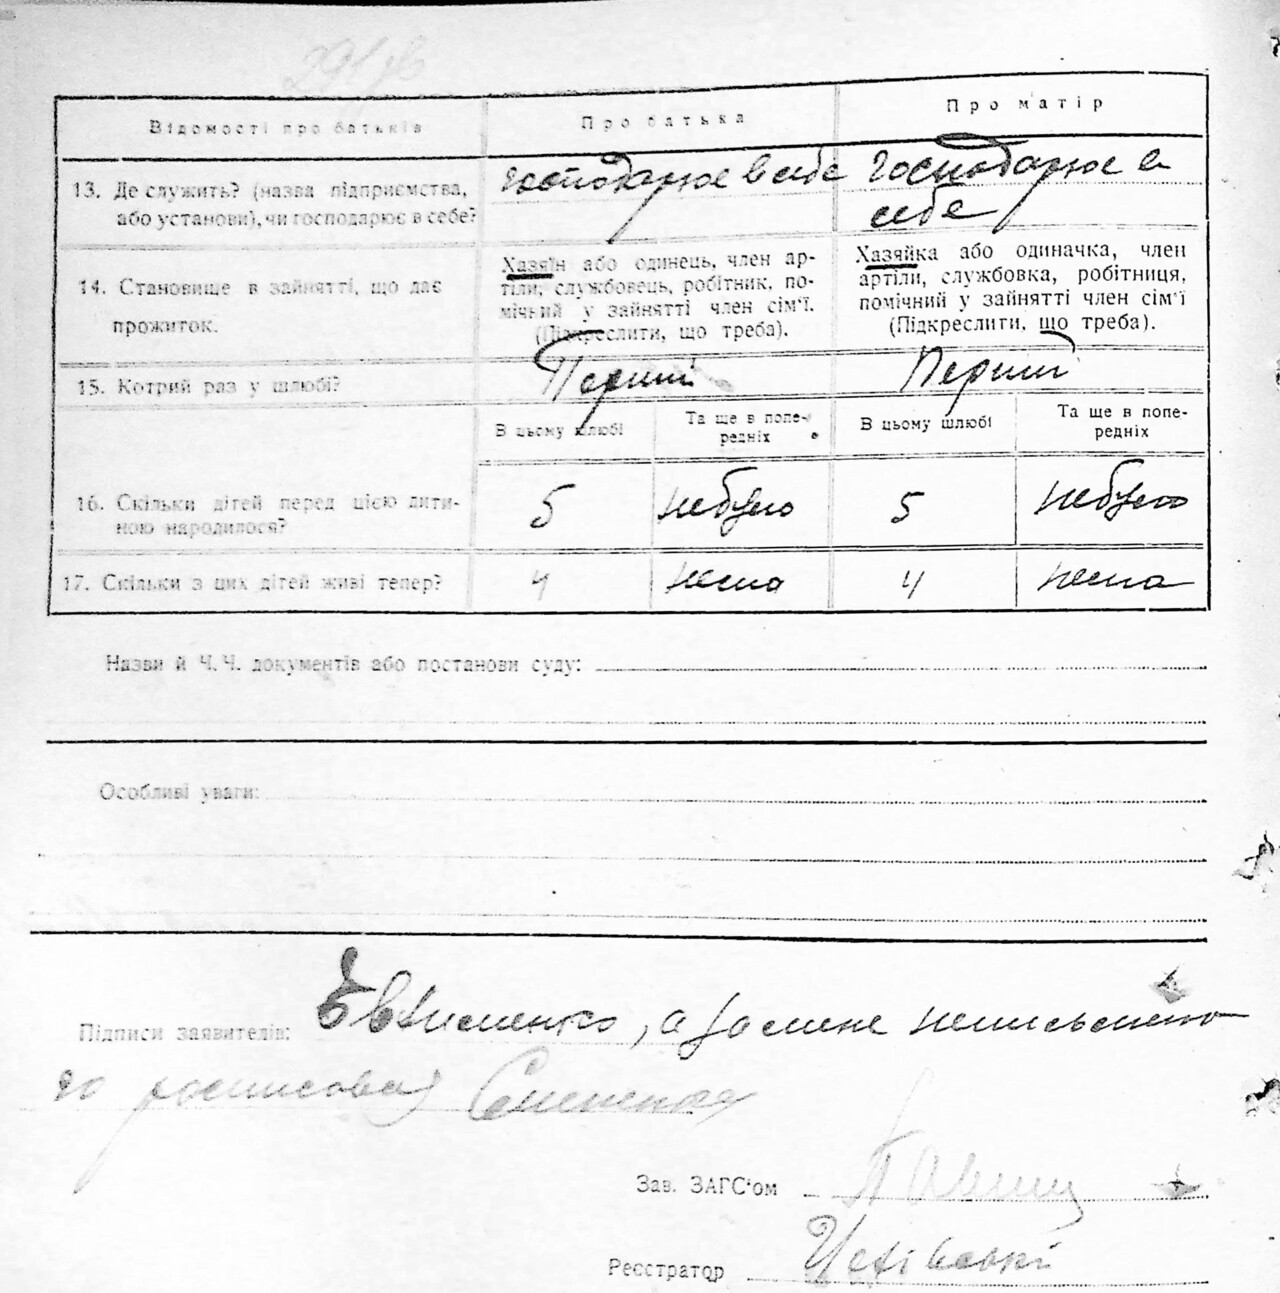 291 зв
Відомості про батьків
Про батька
Про матір
13. Де служить? (назва підприємства,
або установи), чи господарює в себе?
господарює в себе
господарює в
себе
14. Становище в зайнятті, що дає
прожиток.
Хазяїн або одинець, член ар-
тіли, службовець, робітник, по-
мічний у зайнятті член сім'ї.
(Підкреслити, що треба).
Хазяйка або одиначка, член
артіли, службовка, робітниця,
помічний у зайнятті член сім'ї
(Підкреслити, що треба).
15. Котрий раз у шлюбі?
Перший
Перший
В цьому шлюбі
Та ще в попе-
редніх
В цьому шлюбі
Та ще в попе-
редніх
16. Скільки дітей перед цією дити-
ною народилося?
5
небуло
5
небуло
17. Скільки з цих дітей живі тепер?
4
нема
4
нема
Назви й Ч.Ч. документів або постанови суду:
Особливі уваги:
Підписи заявителів:
, а неписьмено
го росписовая
Зав. ЗАГС'ом
Реєстратор